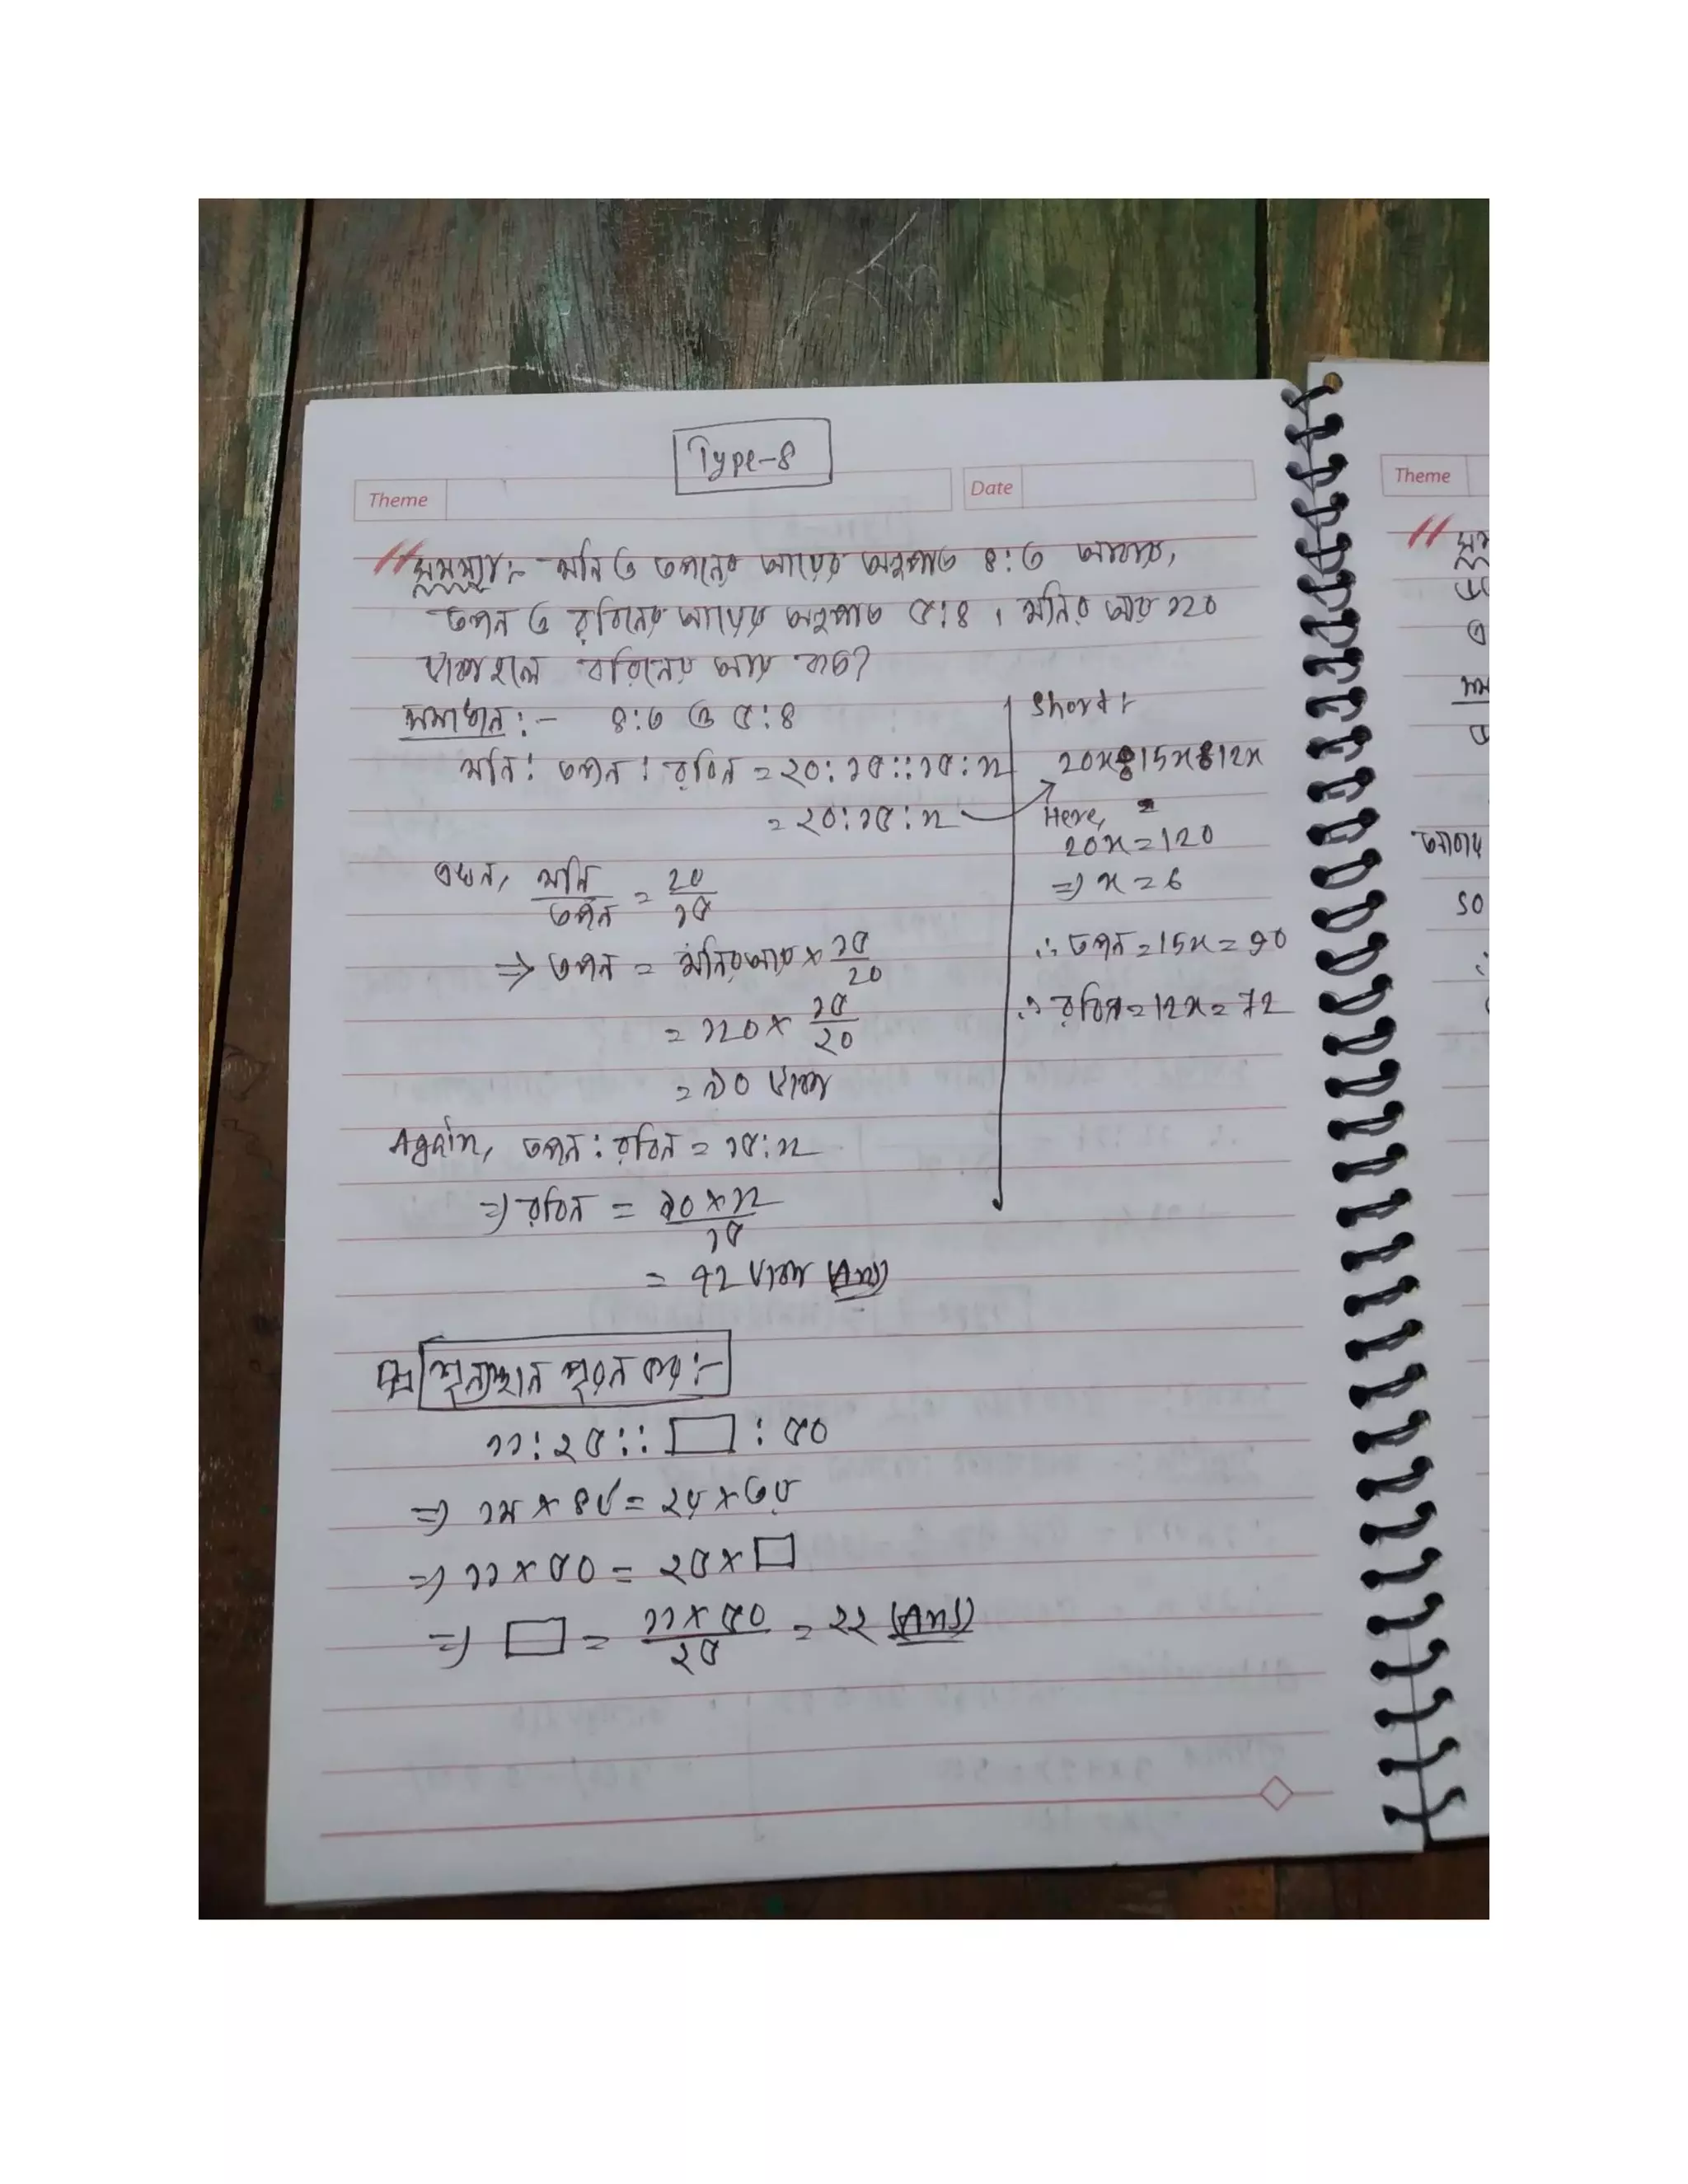 Type-8
Theme
Date
সমস্যা:- মনি ও তপনের আয়ের অনুপাত ৪:৩ আবার,
তপন ও রবিনের আয়ের অনুপাত ৫:৪। মনির আয় ১২০
টাকা হলে রবিনের আয় কত?
সমাধান:- ৪:৩ ও ৫:৪
মনি : তপন : রবিন = ২০:১৫::১৫:১২
= ২০:১৫:১২
এখন, মনি/তপন = ২০/১৫
⇒ তপন = মনির আয় × ১৫/২০
= ১২০ × ১৫/২০
= ৯০ টাকা
Again, তপন : রবিন = ১৫:১২
⇒ রবিন = ৯০×১২/১৫
= ৭২ টাকা (Ans)
Short
20x:15x:12x
Here,
20x=120
⇒ x=6
∴ তপন=15x=90
∴ রবিন=12x=72
শূন্যস্থান পূরন কর:-
১১:২৫::□:৫০
⇒ ১১×৫০ = ২৫×□
⇒ □ = ১১×৫০/২৫ = ২২ (Ans)
Theme
SO